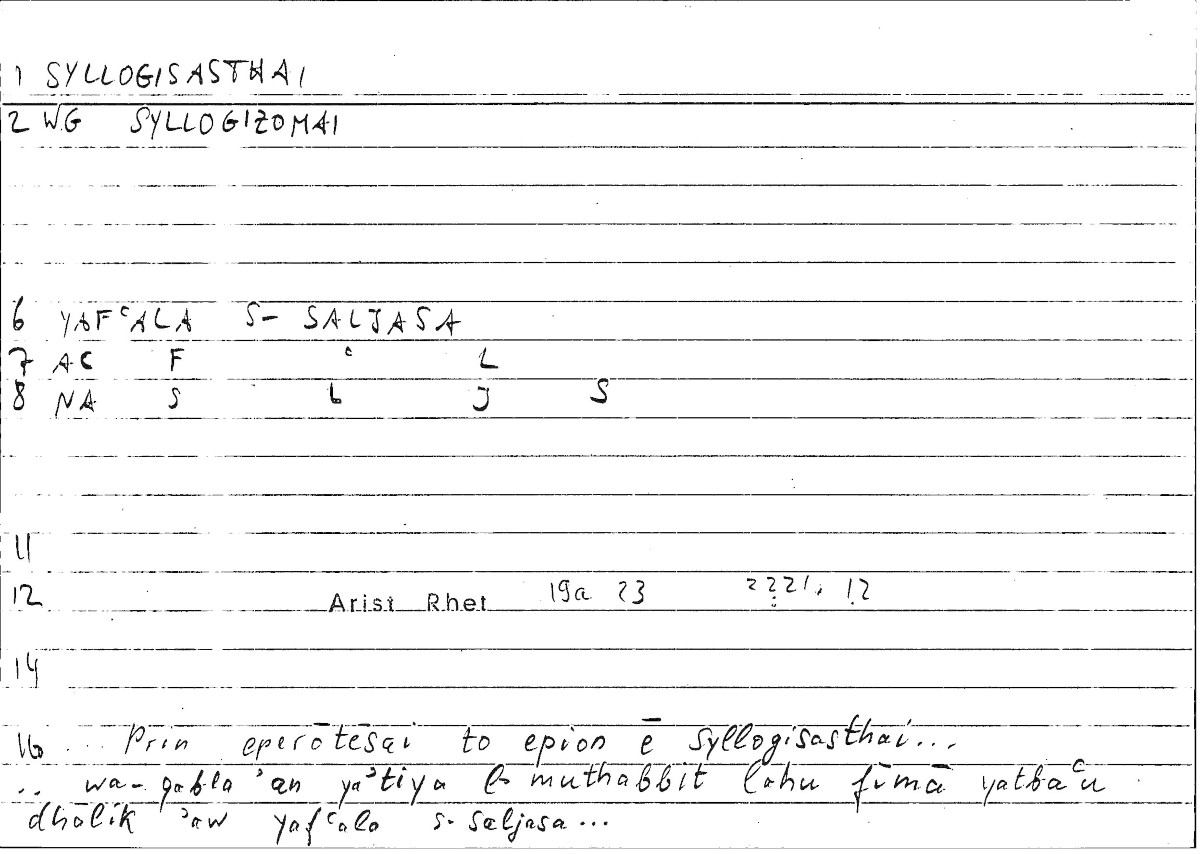 1 SYLLOGISASTHAI
2 WG SYLLOGIZOMAI
6 YAFᶜALA S- SALJASA
7 AC F ᶜ L
8 NA S L J S
11
12 Arist Rhet 19a 23 2221, 12
14
16 ... Prin eperōtēsai to epion ē syllogisasthai...
.. wa-qabla ʾan yaʾtiya l- muthabbit lahu fīmā yatbaᶜu
dhālik ʾaw yafᶜala s- saljasa...